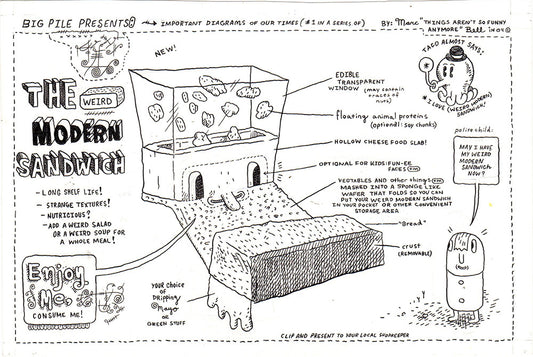 BIG PILE PRESENTS
IMPORTANT DIAGRAMS OF OUR TIMES (#1 IN A SERIES OF)
BY: Marc "THINGS AREN'T SO FUNNY
ANYMORE" Bell
NEW!
THE
WEIRD
MODERN
SANDWICH
- LONG SHELF LIFE!
- STRANGE TEXTURES!
- NUTRICIOUS?
- ADD A WEIRD SALAD
OR A WEIRD SOUP FOR
A WHOLE MEAL!
Enjoy
Me,
CONSUME ME!
EDIBLE
TRANSPARENT
WINDOW (may contain
traces of
nuts)
floating animal proteins
(optional: soy chunks)
HOLLOW CHEESE FOOD SLAB!
OPTIONAL FOR KIDS: FUN-EE
FACES TM
VEGTABLES AND other things TM
MASHED INTO A SPONGE LIKE
WAFER THAT FOLDS SO YOU CAN
PUT YOUR WEIRD MODERN SANDWICH
IN YOUR POCKET OR OTHER CONVENIENT
STORAGE AREA
"Bread"
CRUST
(REMOVABLE)
YOUR CHOICE
OF
DRIPPING
Mayo
OR
GREEN STUFF
TACO ALMOST SAYS:
"I LOVE (WEIRD MODERN)
SANDWICH!"
polite child:
MAY I HAVE
MY WEIRD
MODERN
SANDWICH
NOW?
CLIP AND PRESENT TO YOUR LOCAL SHOPKEEPER